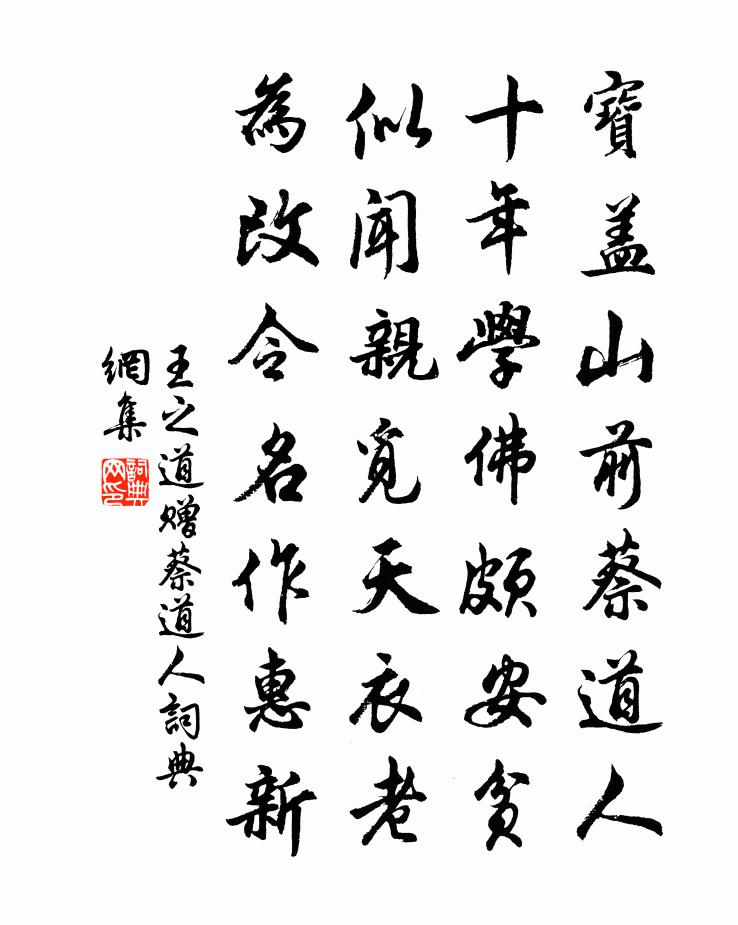 寶盖山前蔡道人
十年學佛頗安貧
似聞親覓天衣老
為改令名作惠新
王之道贈蔡道人詞典
網集
詞典網印